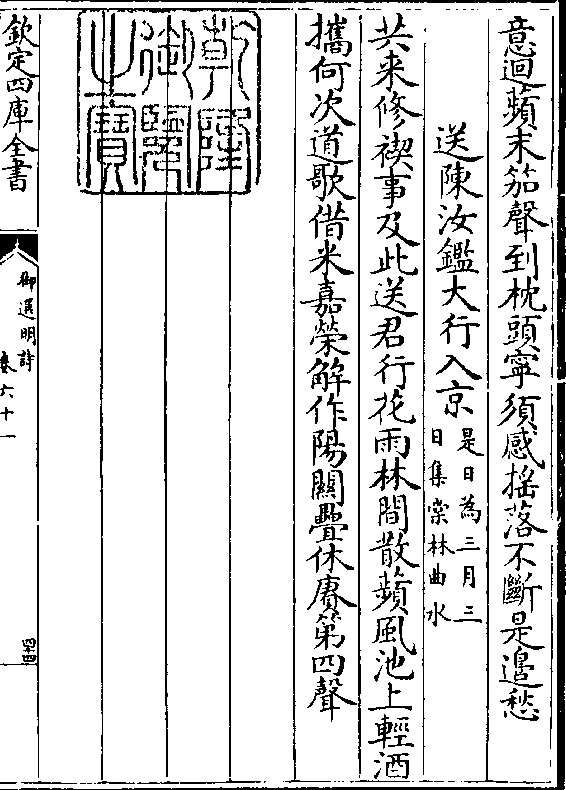 意迴蘋末笳聲到枕頭寧須感搖落不斷是邉愁
送陳汝鑑大行入京是日為三月三日集棠林曲水
共来修禊事及此送君行花雨林間散蘋風池上輕酒
攜何次道歌借米嘉榮解作陽關疊休賡第四聲
乾隆御覽之寶
欽定四庫全書
御選明詩
卷六十一
四十四